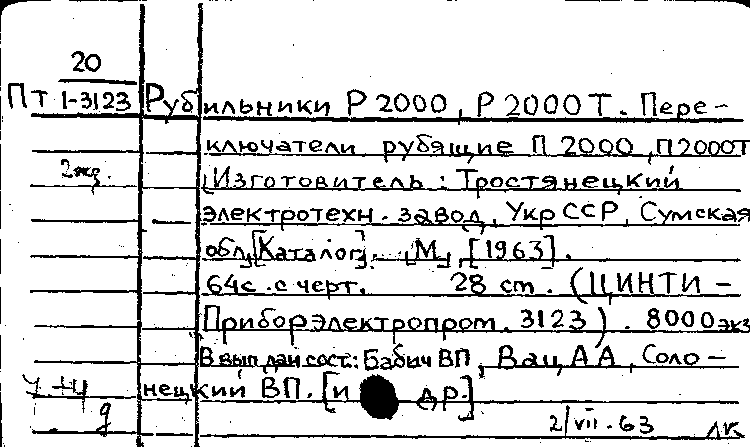 20
Пт 1-3123 Рубильники Р 2000, Р 2000 Т. Пере-
ключатели рубящие П 2000, П 2000Т
2 экз. [Изготовитель: Тростянецкий
электротехн. завод, Укр ССР, Сумская
обл.] [Каталог]. [М], [1963].
64с. с черт. 28 см. (ЦИНТИ-
Приборэлектропром. 3123). 8000 экз
В вып дан сост: Бабич ВП, Вац АА, Соло-
нецкий ВП. [и др.]
2/VII.63 ЛК